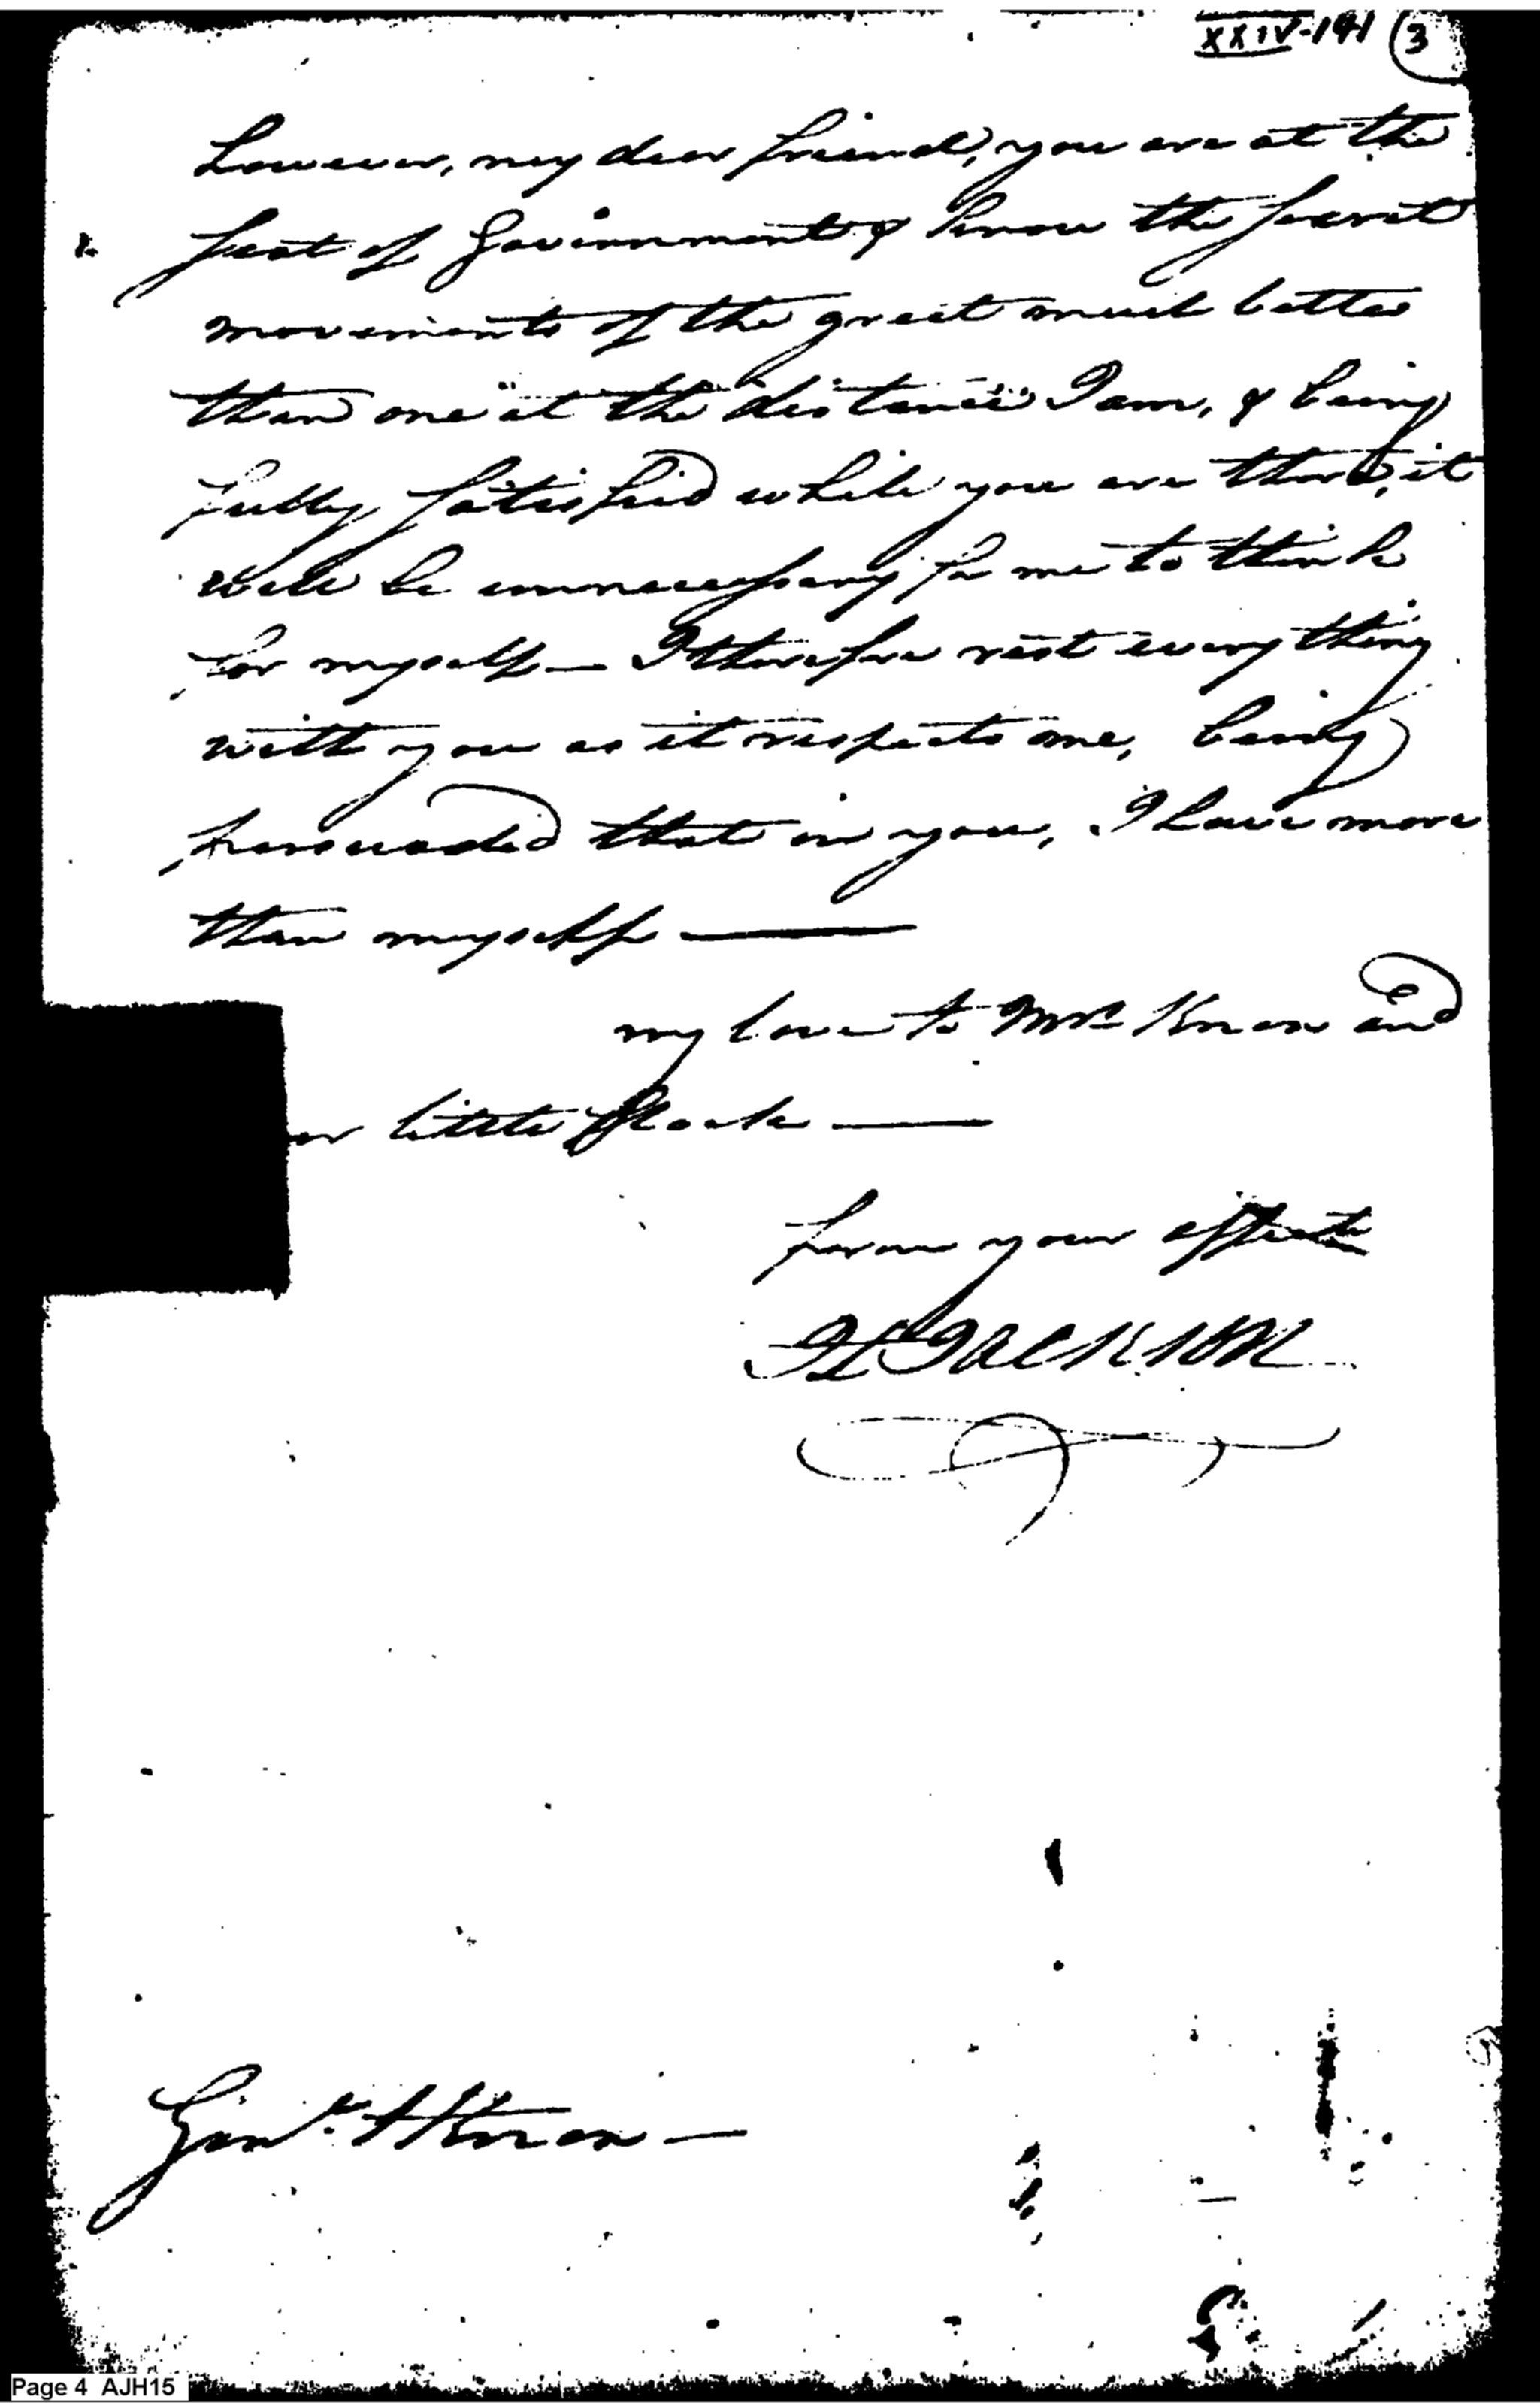 XXIV-141 (3)
however, my dear friend, you are at the
seat of Government & know the secret
movements of the great much better
than one at the distance I am, & being
fully satisfied while you are there, it
will be unnecessary for me to think
for myself — I therefore rest every thing
with you as it respects me, being
persuaded that in you, I have more
than myself —
my love to Mrs Knox and
little flock —
from your affect
H Jackson
Genl. H Knox —
Page 4 AJH15